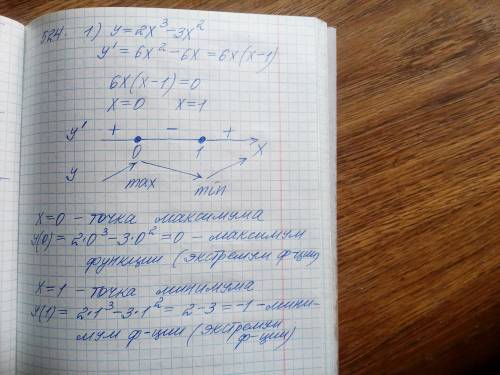 524. 1) y = 2x³ - 3x²
y' = 6x² - 6x = 6x(x-1)
6x(x-1) = 0
x = 0 x = 1
y' + - +
0 1 x
y max min
x = 0 - точка максимума
y(0) = 2·0³ - 3·0² = 0 - максимум
функции (экстремум ф-ции)
x = 1 - точка минимума
y(1) = 2·1³ - 3·1² = 2 - 3 = -1 - мини-
мум ф-ции (экстремум
ф-ции)